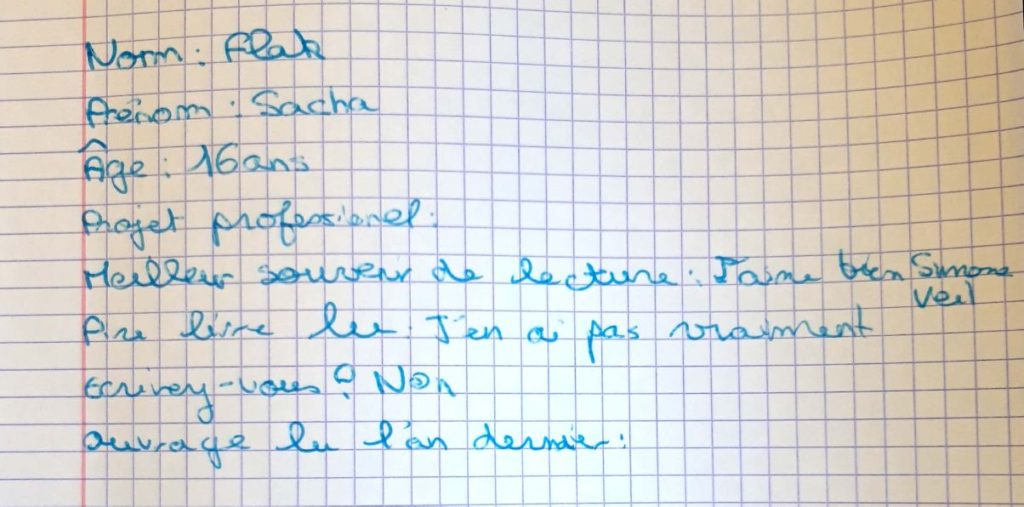 Nom : Flak
Prénom : Sacha
Âge : 16 ans
Projet professionel :
Meilleur souvenir de lecture : J'aime bien Simone
Veil
Pire livre lu : J'en ai pas vraiment
Ecrivez-vous ? Non
Ouvrage lu l'an dernier :